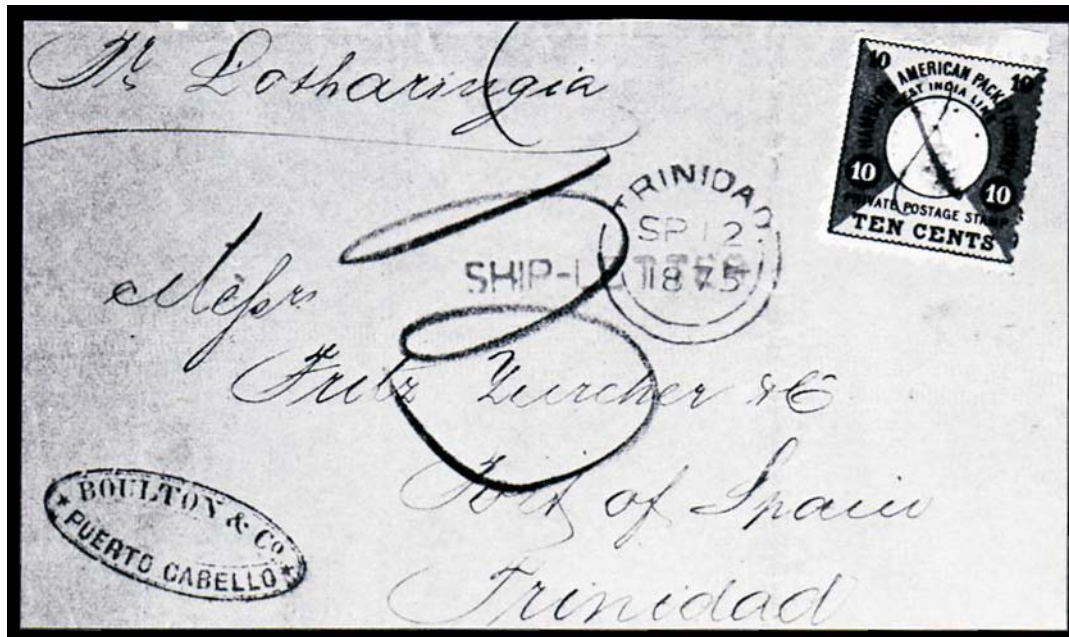 Pr Lotharingia
10 10
HAMBURG AMERICAN PACKET COMPANY
WEST INDIA LINE
10 10
PRIVATE POSTAGE STAMP
TEN CENTS
TRINIDAD
SP 12
1875
SHIP-LETTER
3
Messrs
Fritz Zurcher & C
Port of Spain
Trinidad
BOULTON & Co.
PUERTO CABELLO